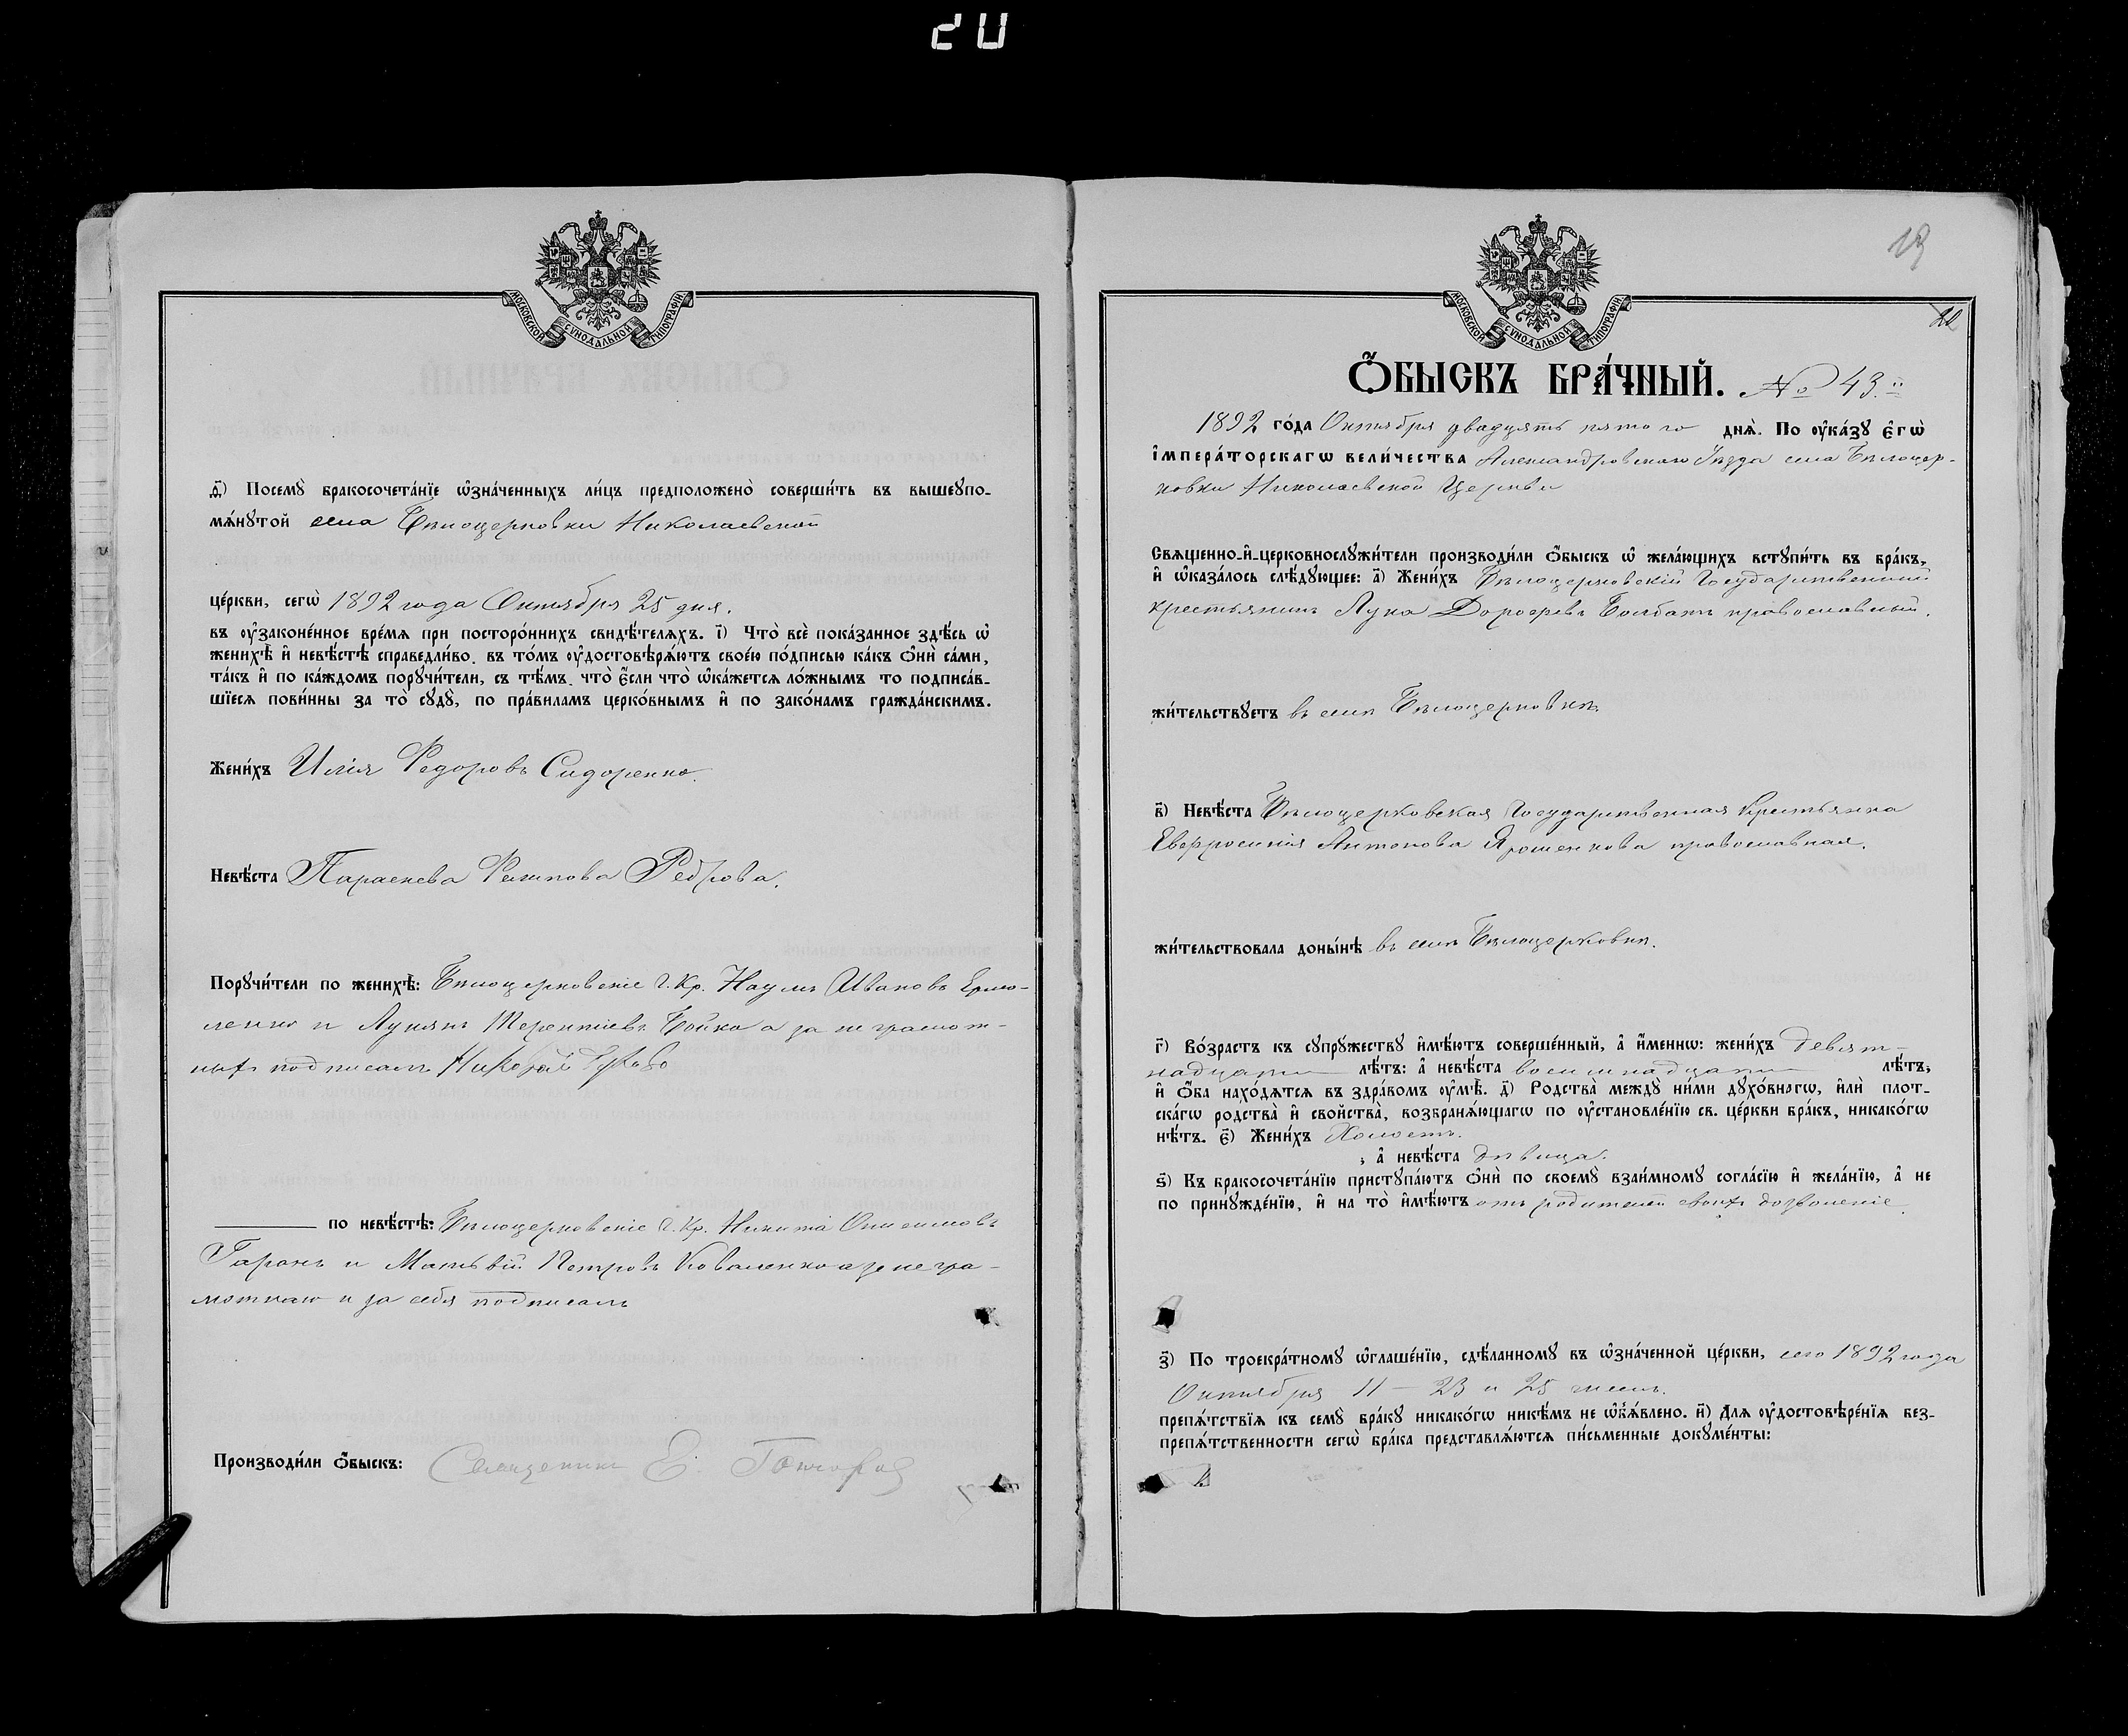 20
МОСКОВСКОЙ СѴНОДАЛЬНОЙ ТИПОГРАФІИ
ѳ҃) Посемꙋ̀ бракосочета́нїе ѡ҆зна́ченныхъ ли́цъ предположено̀ соверши́ть въ вышеꙋпо-
мѧ́нꙋтой села Бѣлоцерковки Николаевской
це́ркви, сегѡ̀ 1892 года Октября 25 дня.
въ ᲂу҆законе́нное вре́мѧ при посторо́ннихъ свидѣ́телѧхъ. і҃) Что̀ всѐ пока́занное здѣ́сь ѡ҆
женихѣ̀ и҆ невѣ́стѣ справедли́во. въ то́мъ ᲂу҆достовѣрѧ́ютъ свое́ю по́дписью ка́къ ѻ҆нѝ са́ми,
та́къ и҆ по ка́ждомъ порꙋчи́тели, съ тѣ́мъ. что̀ є҆́сли что̀ ѡ҆ка́жетсѧ ло́жнымъ то подписа́в-
шїесѧ пови́нны за то̀ сꙋдꙋ̀, по пра́виламъ церко́внымъ и҆ по зако́намъ гражда́нскимъ.
Жени́хъ Илія Федоровъ Сидоренко.
Невѣ́ста Параскева Филипова
Порꙋчи́тели по женихѣ̀: Бѣлоцерковскіе Г. Кр. Наумъ Ивановъ Ермо-
ленко и Лукянъ Терентіевъ Бойко а за не грамот-
ныхъ подписалъ Николай
по невѣ́стѣ: Бѣлоцерковскіе Г. Кр. Никита Онисимовъ
Гаранъ и Матѣвій Петровъ Коваленко а за не гра-
мотнаго и за себя подписалъ
Производи́ли ѻ҆́быскъ: Священникъ Е.
19
МОСКОВСКОЙ СѴНОДАЛЬНОЙ ТИПОГРАФІИ
Ѻ҆́быскъ бра́чный. № 43.й
1892 го́да Октября двадцять пятого днѧ̀. По ᲂу҆ка́зꙋ є҆гѡ̀
і҆мпера́торскагѡ вели́чества Александровскаго Уѣзда села Бѣлоцер-
ковки Николаевской Церкви
Свѧще́нно-и҆-церковнослꙋжи́тели производи́ли ѻ҆́быскъ ѡ҆ жела́ющихъ встꙋпи́ть въ бра́къ,
и҆ ѡ҆каза́лось слѣ́дꙋющее: а҃) Жени́хъ Бѣлоцерковскій Государственный
крестьянинъ Лука Дорофѣевъ Болбатъ православный.
жи́тельствꙋетъ въ селѣ Бѣлоцерковкѣ.
в҃) Невѣ́ста Бѣлоцерковская Государственная Крестьянка
Евфросинія Антонова Ярошенкова православная.
жи́тельствовала доны́нѣ въ селѣ Бѣлоцерковкѣ.
г҃) Во́зрастъ къ сꙋпрꙋ́жествꙋ и҆мѣ́ютъ соверше́нный, а҆ и҆́меннѡ: жени́хъ девят-
надцати лѣ́тъ: а҆ невѣ́ста восемнадцати лѣ́тъ,
и҆ ѻ҆́ба нахо́дѧтсѧ въ здра́вомъ ᲂу҆мѣ̀. д҃) Родства̀ междꙋ̀ ни́ми дꙋхо́внагѡ, и҆лѝ плот-
ска́гѡ родства̀ и҆ свойства̀, возбранѧ́ющагѡ по ᲂу҆становле́нїю св. це́ркви бра́къ, никако́гѡ
нѣ́тъ. є҃) Жени́хъ Холостъ.
, а҆ невѣ́ста дѣвица.
ѕ҃) Къ бракосочета́нїю пристꙋпа́ютъ ѻ҆нѝ по своемꙋ̀ взаи́мномꙋ согла́сїю и҆ жела́нїю, а҆ не
по принꙋжде́нїю, и҆ на то̀ и҆мѣ́ютъ отъ родителей своихъ дозволеніе
з҃) По троекра́тномꙋ ѡ҆глаше́нїю, сдѣ́ланномꙋ въ ѡ҆зна́ченной це́ркви, сего 1892 года
Октября 11 – 23 и 25 чиселъ.
препѧ́тствїѧ къ семꙋ̀ бра́кꙋ никако́гѡ никѣ́мъ не ѡ҆б̾ѧ́влено. и҃) Длѧ ᲂу҆достовѣре́нїѧ без-
препѧ́тственности сегѡ̀ бра́ка представлѧ́ютсѧ пи́сьменные докꙋме́нты: